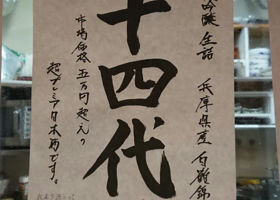 吟醸 生詰 兵庫県産 白鶴錦
十四代
市場価格 五万円超えの
超プレミア日本酒です。